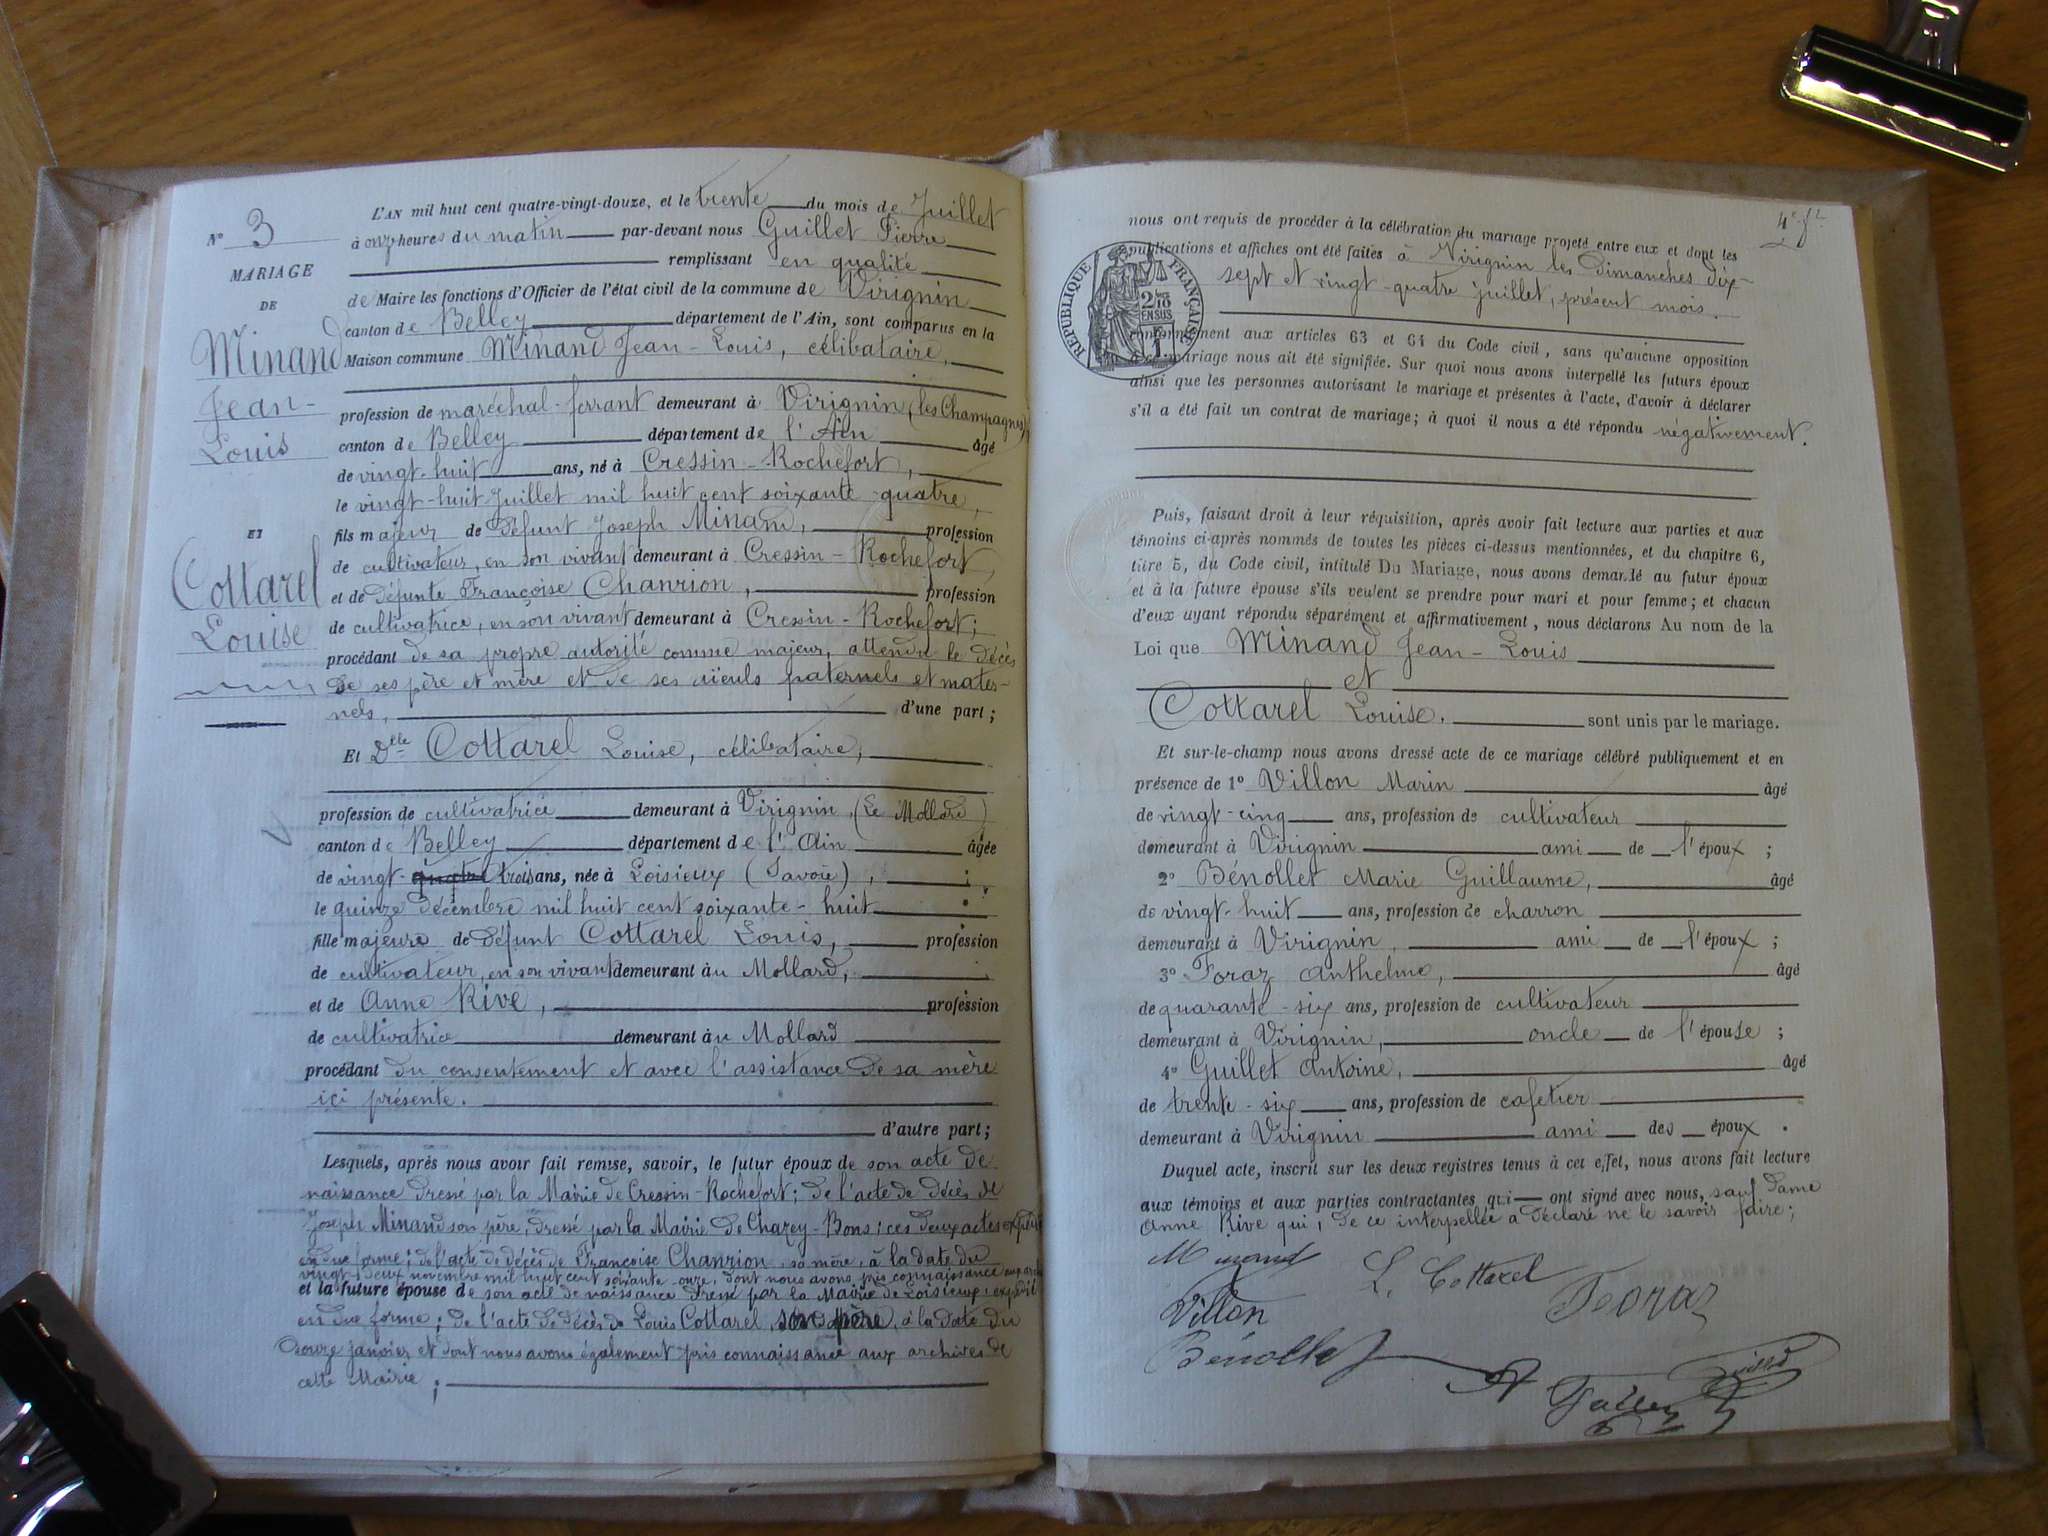 N° 3
MARIAGE
DE
Minand
Jean-
Louis
ET
Cottarel
Louise
L'AN mil huit cent quatre-vingt-douze, et le trente du mois de Juillet
à onze heures du matin par-devant nous Guillet Pierre
remplissant en qualité
de Maire les fonctions d'Officier de l'état civil de la commune de Virignin
canton de Belley département de l'Ain, sont comparus en la
Maison commune Minand Jean-Louis, célibataire,
profession de maréchal-ferrant demeurant à Virignin (les Champagnes)
canton de Belley département de l'Ain âgé
de vingt-huit ans, né à Cressin-Rochefort,
le vingt-huit Juillet mil huit cent soixante-quatre,
fils majeur de défunt Joseph Minand, profession
de cultivateur, en son vivant demeurant à Cressin-Rochefort,
et de défunte Françoise Chanrion, profession
de cultivatrice, en son vivant demeurant à Cressin-Rochefort;
procédant de sa propre autorité comme majeur, attendu le décès
de ses père et mère et de ses aïeuls paternels et mater-
nels, d'une part;
Et Dlle Cottarel Louise, célibataire,
profession de cultivatrice demeurant à Virignin, (Le Mollard)
canton de Belley département de l'Ain âgée
de vingt-quatre trois ans, née à Loisieux (Savoie),
le quinze décembre mil huit cent soixante-huit
fille majeure de défunt Cottarel Louis, profession
de cultivateur, en son vivant demeurant au Mollard,
et de Anne Rive, profession
de cultivatrice demeurant au Mollard
procédant du consentement et avec l'assistance de sa mère
ici présente.
d'autre part;
Lesquels, après nous avoir fait remise, savoir, le futur époux de son acte de
naissance dressé par la Mairie de Cressin-Rochefort; de l'acte de décès de
Joseph Minand son père, dressé par la Mairie de Chazey-Bons; ces deux actes
en due forme; de l'acte de décès de Françoise Chanrion, sa mère, à la date du
vingt-deux novembre mil huit cent soixante-onze, dont nous avons pris connaissance
et la future épouse de son acte de naissance dressé par la Mairie de Loisieux, expédié
en due forme; de l'acte de décès de Louis Cottarel, son père, à la date du
douze janvier et dont nous avons également pris connaissance aux archives de
cette Mairie;
nous ont requis de procéder à la célébration du mariage projeté entre eux et dont les
publications et affiches ont été faites à Virignin les dimanches dix-
sept et vingt-quatre juillet, présent mois.
RÉPUBLIQUE FRANÇAISE
conformément aux articles 63 et 64 du Code civil, sans qu'aucune opposition
à ce mariage nous ait été signifiée. Sur quoi nous avons interpellé les futurs époux
ainsi que les personnes autorisant le mariage et présentes à l'acte, d'avoir à déclarer
s'il a été fait un contrat de mariage; à quoi il nous a été répondu négativement.
Puis, faisant droit à leur réquisition, après avoir fait lecture aux parties et aux
témoins ci-après nommés de toutes les pièces ci-dessus mentionnées, et du chapitre 6,
titre 5, du Code civil, intitulé Du Mariage, nous avons demandé au futur époux
et à la future épouse s'ils veulent se prendre pour mari et pour femme; et chacun
d'eux ayant répondu séparément et affirmativement, nous déclarons Au nom de la
Loi que Minand Jean-Louis
et
Cottarel Louise. sont unis par le mariage.
Et sur-le-champ nous avons dressé acte de ce mariage célébré publiquement et en
présence de 1° Villon Marin âgé
de vingt-cinq ans, profession de cultivateur
demeurant à Virignin ami de l'époux;
2° Bénollet Marie Guillaume, âgé
de vingt-huit ans, profession de charron
demeurant à Virignin, ami de l'époux;
3° Foraz Anthelme, âgé
de quarante-six ans, profession de cultivateur
demeurant à Virignin, oncle de l'épouse;
4° Guillet Antoine, âgé
de trente-six ans, profession de cafetier
demeurant à Virignin ami des époux.
Duquel acte, inscrit sur les deux registres tenus à cet effet, nous avons fait lecture
aux témoins et aux parties contractantes qui ont signé avec nous, sauf dame
Anne Rive qui, de ce interpellée a déclaré ne le savoir faire;
Minand
L. Cottarel
Villon
Feoraz
Bénollet